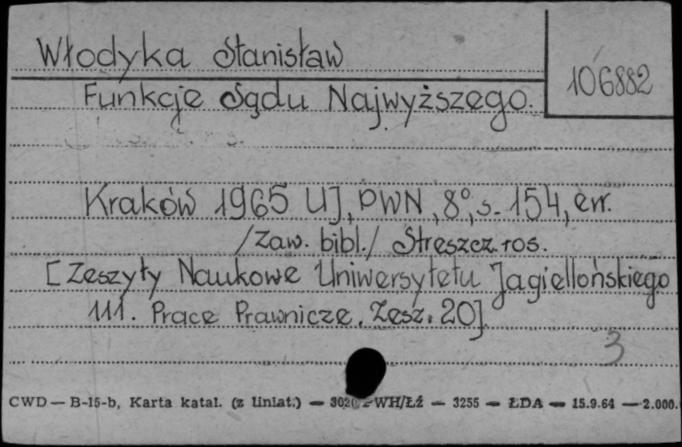 Włodyka Stanisław
106882
Funkcje Sądu Najwyższego.
Kraków 1965 UJ, PWN, 8°, s. 154, err.
/Zaw. bibl./ Streszcz. ros.
[Zeszyty Naukowe Uniwersytetu Jagiellońskiego
111. Prace Prawnicze. Zesz. 20]
3
CWD — B-15-b, Karta katal. (z liniat.) — WH/Łź — 3255 — ŁDA — 15.9.64 — 2.000.